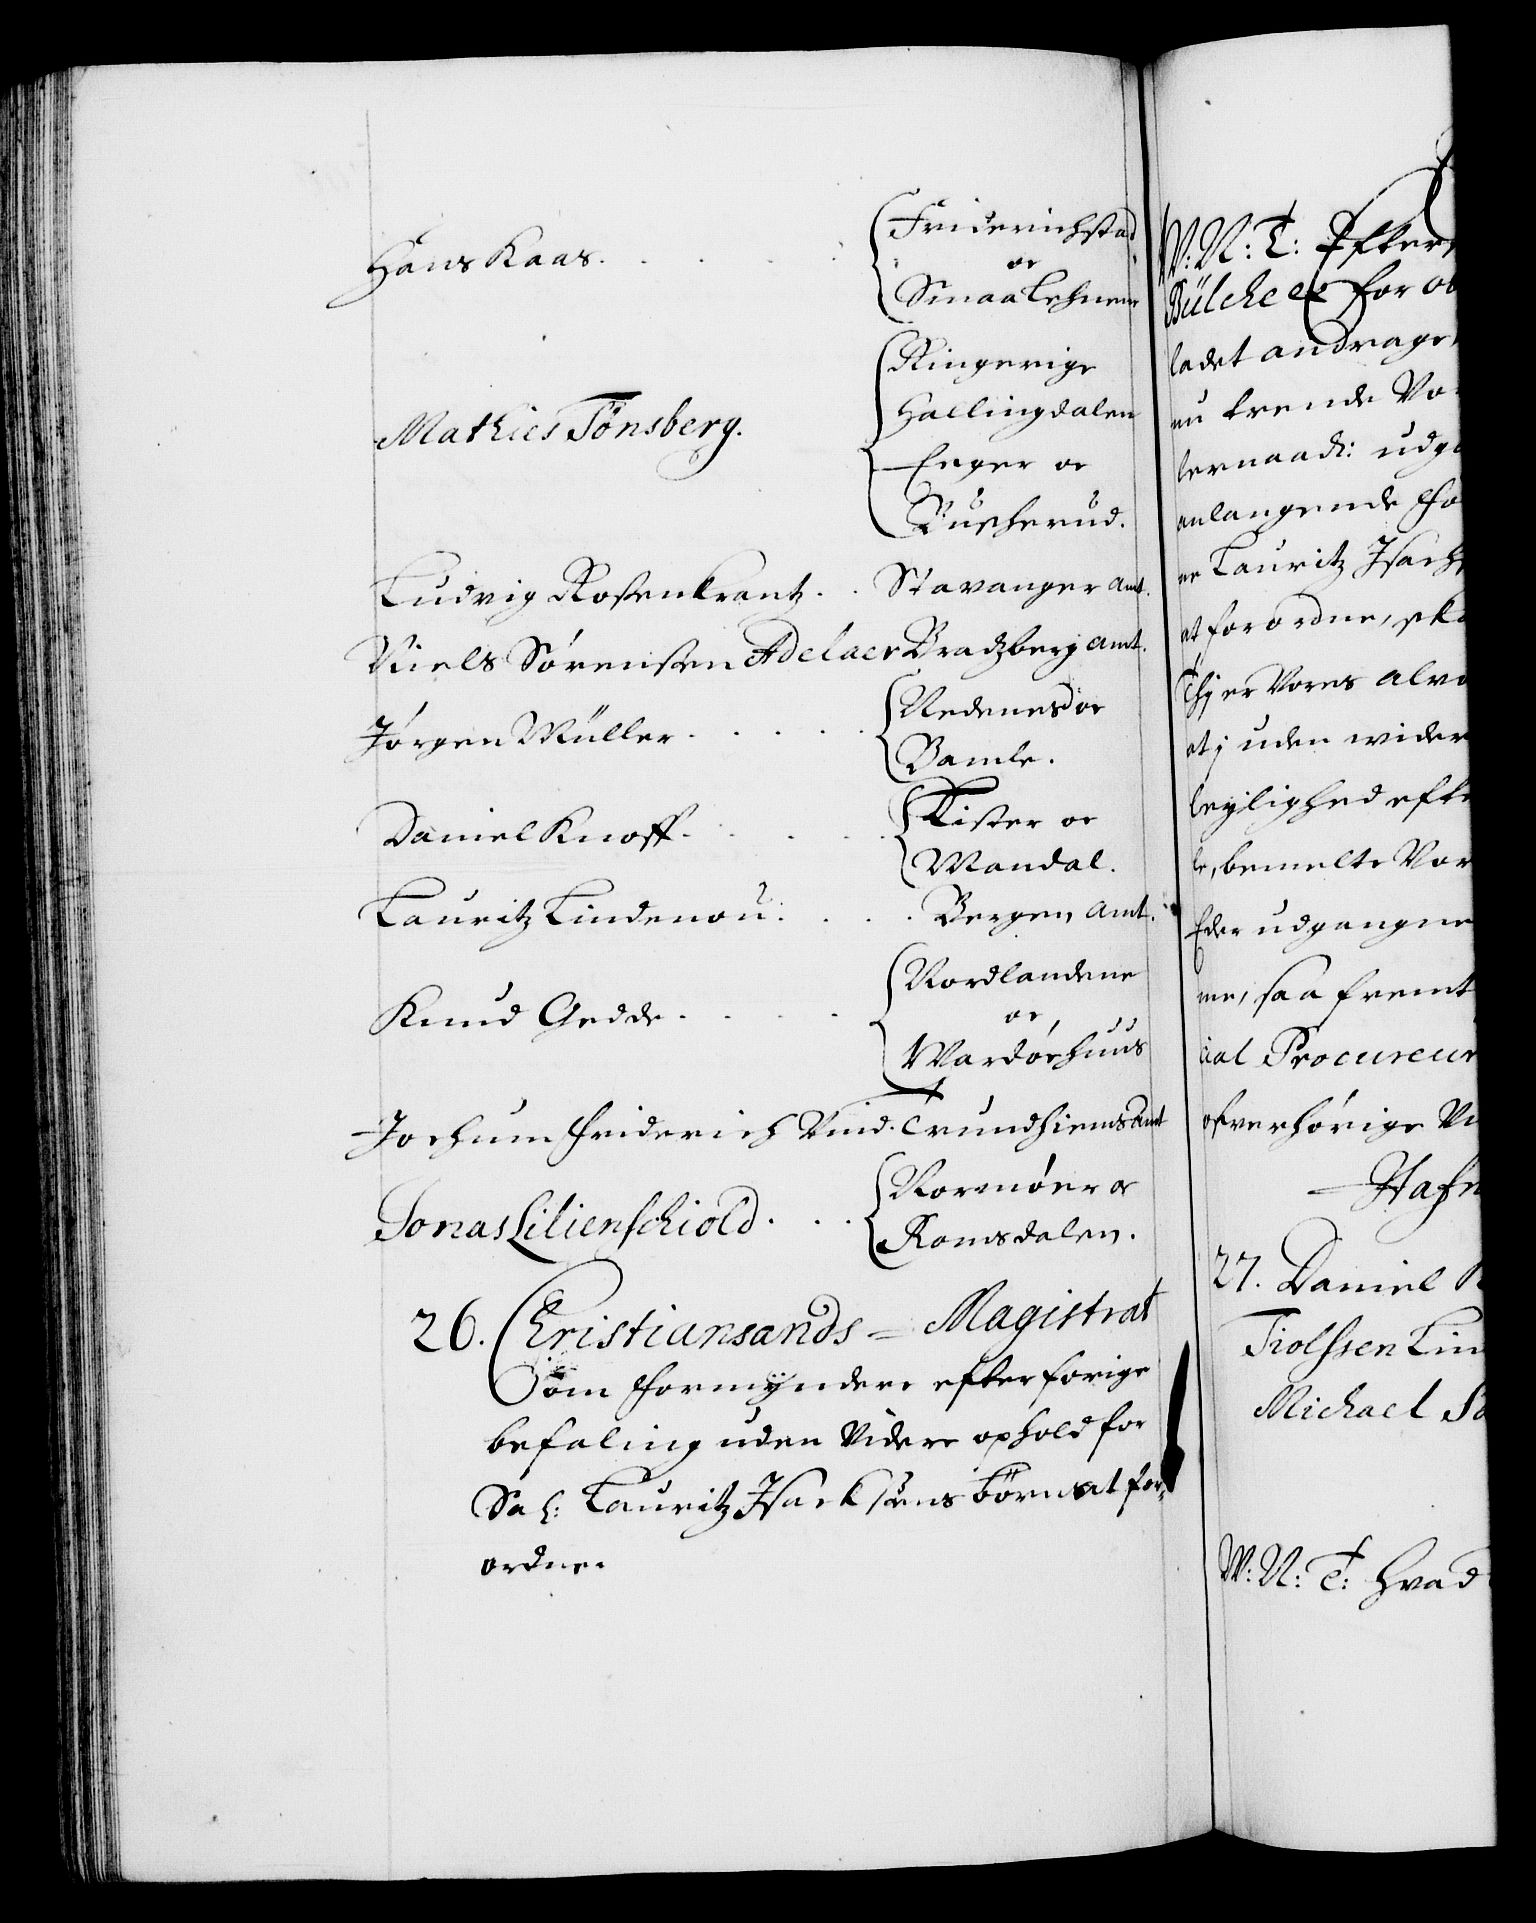 Hans Kaas. . . . . Friderichstad
oc
Smaalehnene
Mathies Tönsberg. Ringerige
Hallingdalen
Eeger oc
Buscherud.
Ludvig Rosenkrantz. . Stavanger amt.
Niels Sörensen Adelaer Bradzberg amt.
Jörgen Müller. . . . . Nedenes oc
Bamle.
Daniel Knoff. . . . . Lister oc
Mandal.
Lauritz Lindenou. . . . Bergen amt.
Knud Gedde. . . . . Nordlandene
oc
Wardöehuus
Jochum Friderich Vind. Trundhiems amt
Jonas Lilienschiold. . . Normöer oc
Romsdalen.
26. Christiansands = Magistrat
Som Formyndere efter forige
befaling uden Videre ophold for
Sal: Lauritz Isacksens börn at for=
ordne.
W: N: T: Efter
Bülche for
ladet andrage,
nu trende Vo
lernaad: udg
anlangende Fo
er Lauritz Isachs
at forordne, ska
Thj er Vores alvo
at j uden wider
leylighed efte
le, bemelte Vor
Eder udgangne
me, saa fremt
cial Procureur
ofverhörige V
Hafn
27. Daniel K
Tiolfsen Lin
Michael Sö
W: N: T: Hvad